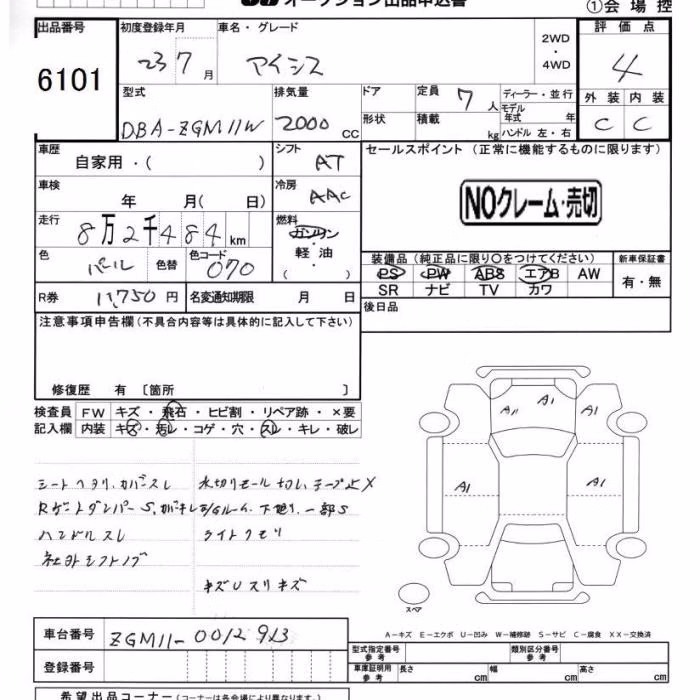 オークション出品申込書
①会場控
出品番号
6101
初度登録年月
23 7 月
車名・グレード
アイシス
2WD
・
4WD
評価点
4
外装 内装
C C
型式
DBA-ZGM11W
排気量
2000 CC
ドア
形状
定員 7 人
積載 kg
ディーラー・並行
モデル年式 年
ハンドル 左・右
車歴
自家用・( )
シフト
AT
車検
年 月( 日)
冷房
AAC
走行
8万2千484 km
燃料
ガソリン
軽油
( )
色
パール
色替
色コード
070
R券 11,750 円
名変通知期限 月 日
セールスポイント (正常に機能するものに限ります)
NOクレーム・売切
装備品 (純正品に限り〇をつけてください)
新車保証書
PS PW ABS エアB AW
SR ナビ TV カワ
有・無
後日品
注意事項申告欄 (不具合内容等は具体的に記入して下さい)
修復歴 有 〔箇所 〕
検査員記入欄
FW キズ・飛石・ヒビ割・リペア跡・×要
内装 キズ・汚レ・コゲ・穴・スレ・キレ・破レ
シートヘタリ、カバースレ
水切りモール切レ、テープ止X
Rゲートダンパー S、
下廻り、一部S
ハンドルスレ
ライトクモリ
社外シフトノブ
キズUスリキズ
A11 A1 A1
A1 A1
スペア
A－キズ E－エクボ U－凹み W－補修跡 S－サビ C－腐食 XX－交換済
車台番号
ZGM11-0012913
登録番号
型式指定番号
参考
類別区分番号
参考
車庫証明用
参考
長さ cm
幅 cm
高さ cm
希望出品コーナー (コーナーは各会場により異なります。)